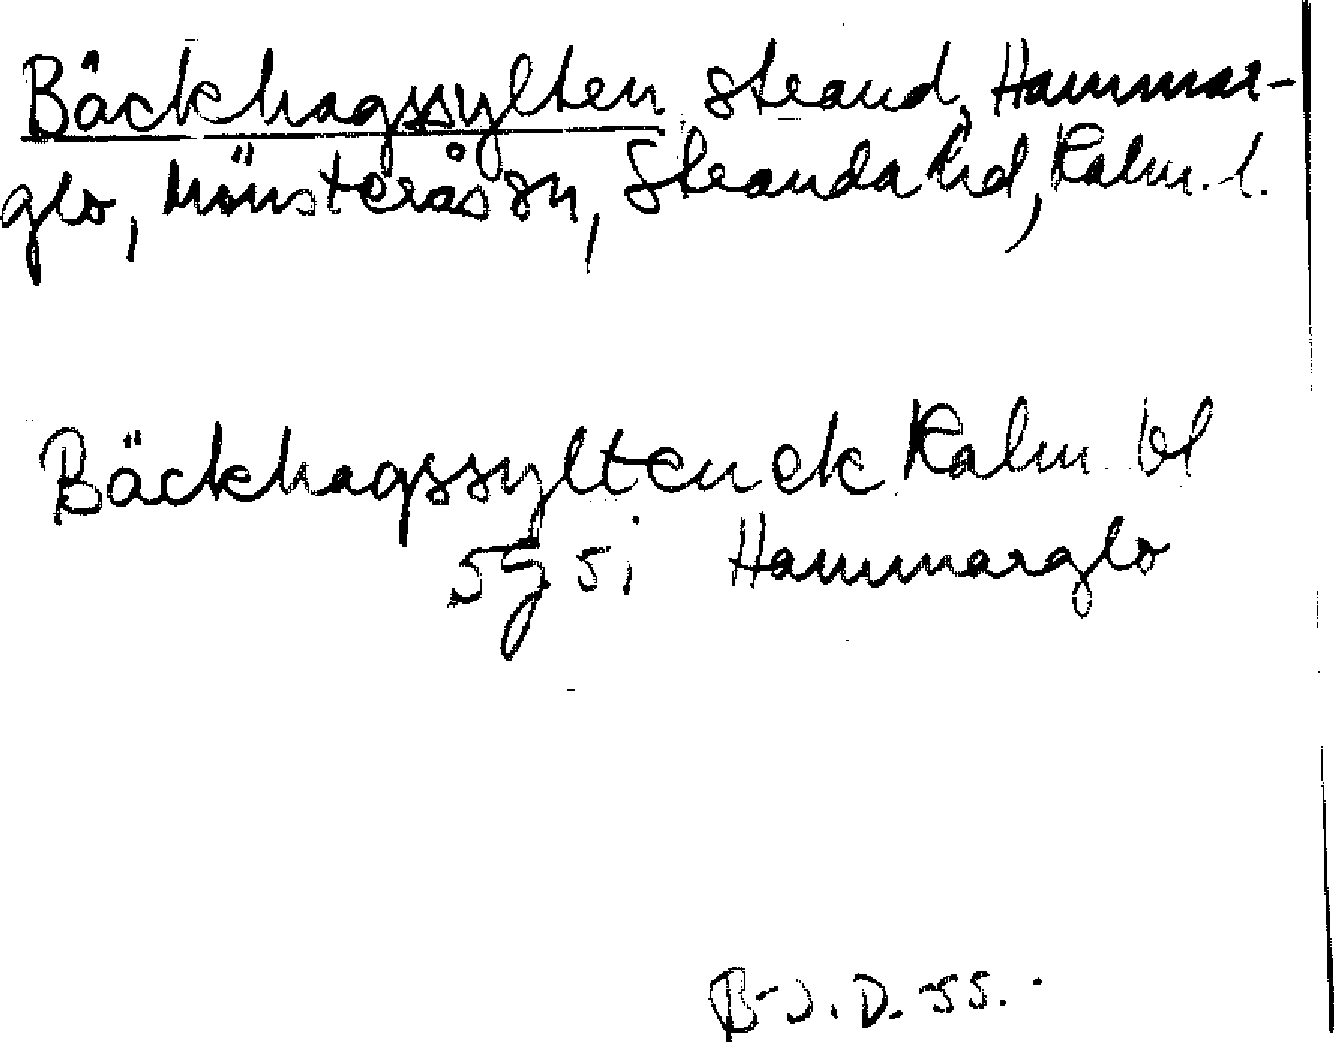 Bäckhagssylten strand, Hammar-
glo, Mönsterås sn, Stranda hd, Kalm. l.
Bäckhagssylten ek Kalm bl
5g 5i Hammarglo
B-J. D. 55.